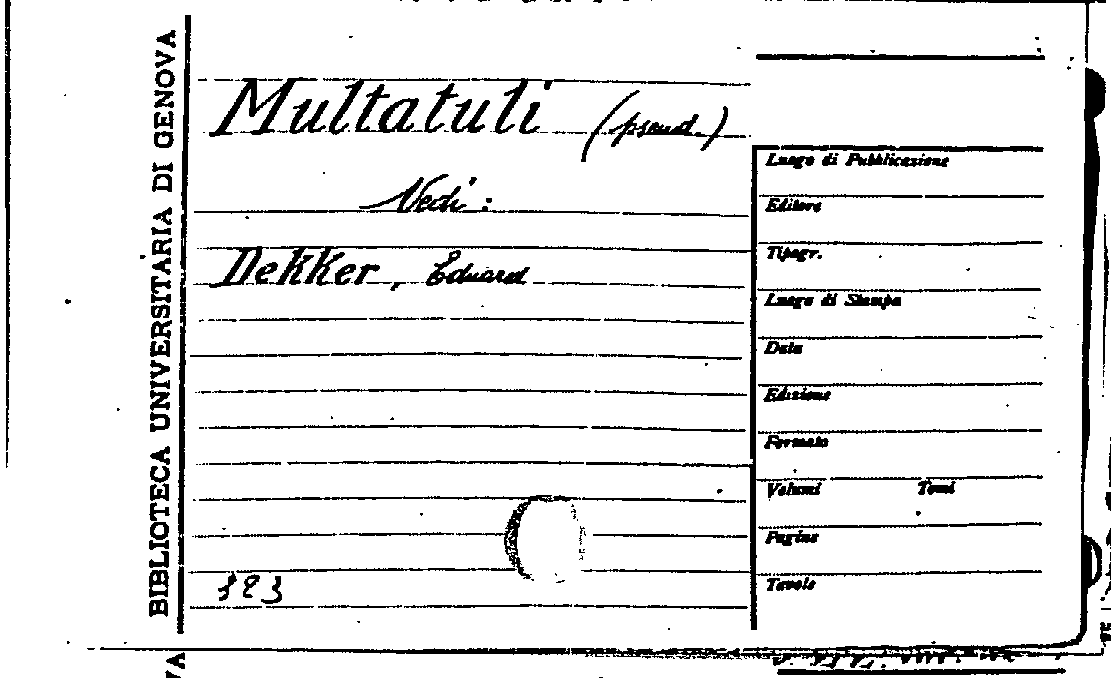 BIBLIOTECA UNIVERSITARIA DI GENOVA
Multatuli (pseud.)
Vedi:
Dekker, Eduard
Luogo di Pubblicazione
Editore
Tipogr.
Luogo di Stampa
Data
Edizione
Formato
Volumi Tomi
Pagine
Tavole